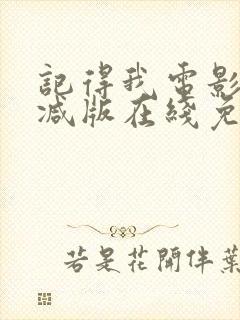 記得我電影
减版在綫免
若是花開伴葉